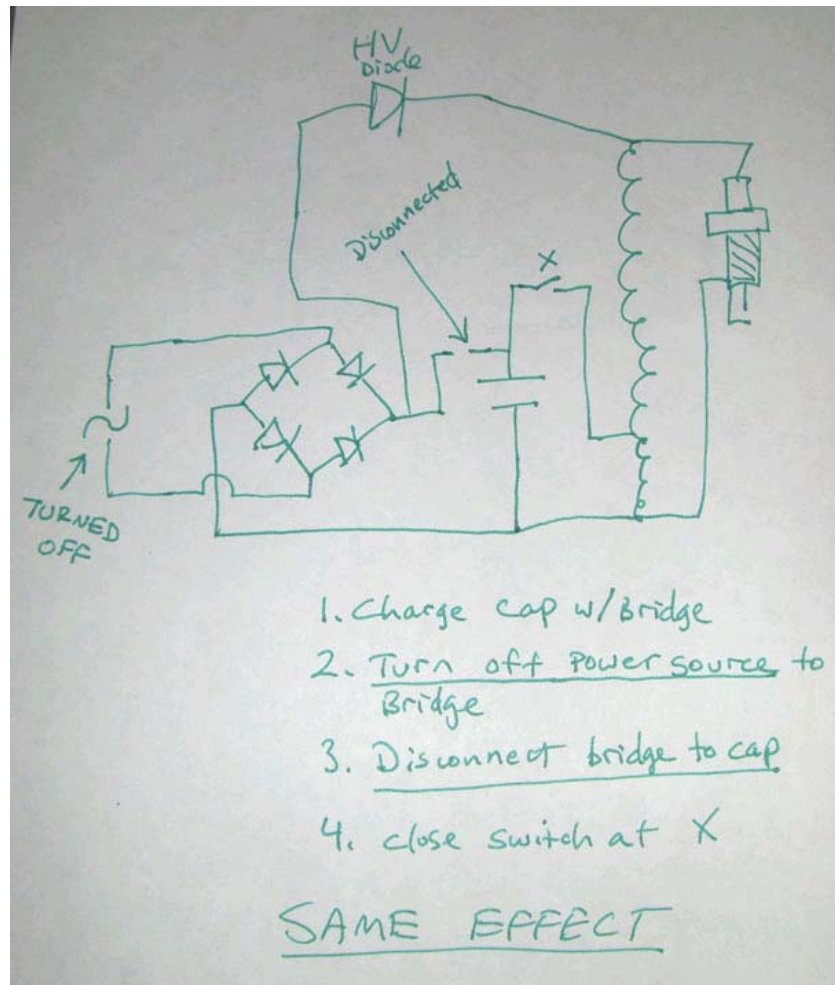 HV
Diode
Disconnected
X
TURNED
OFF
1. Charge cap w/Bridge
2. Turn off Power source to
Bridge
3. Disconnect bridge to cap
4. close switch at X
SAME EFFECT